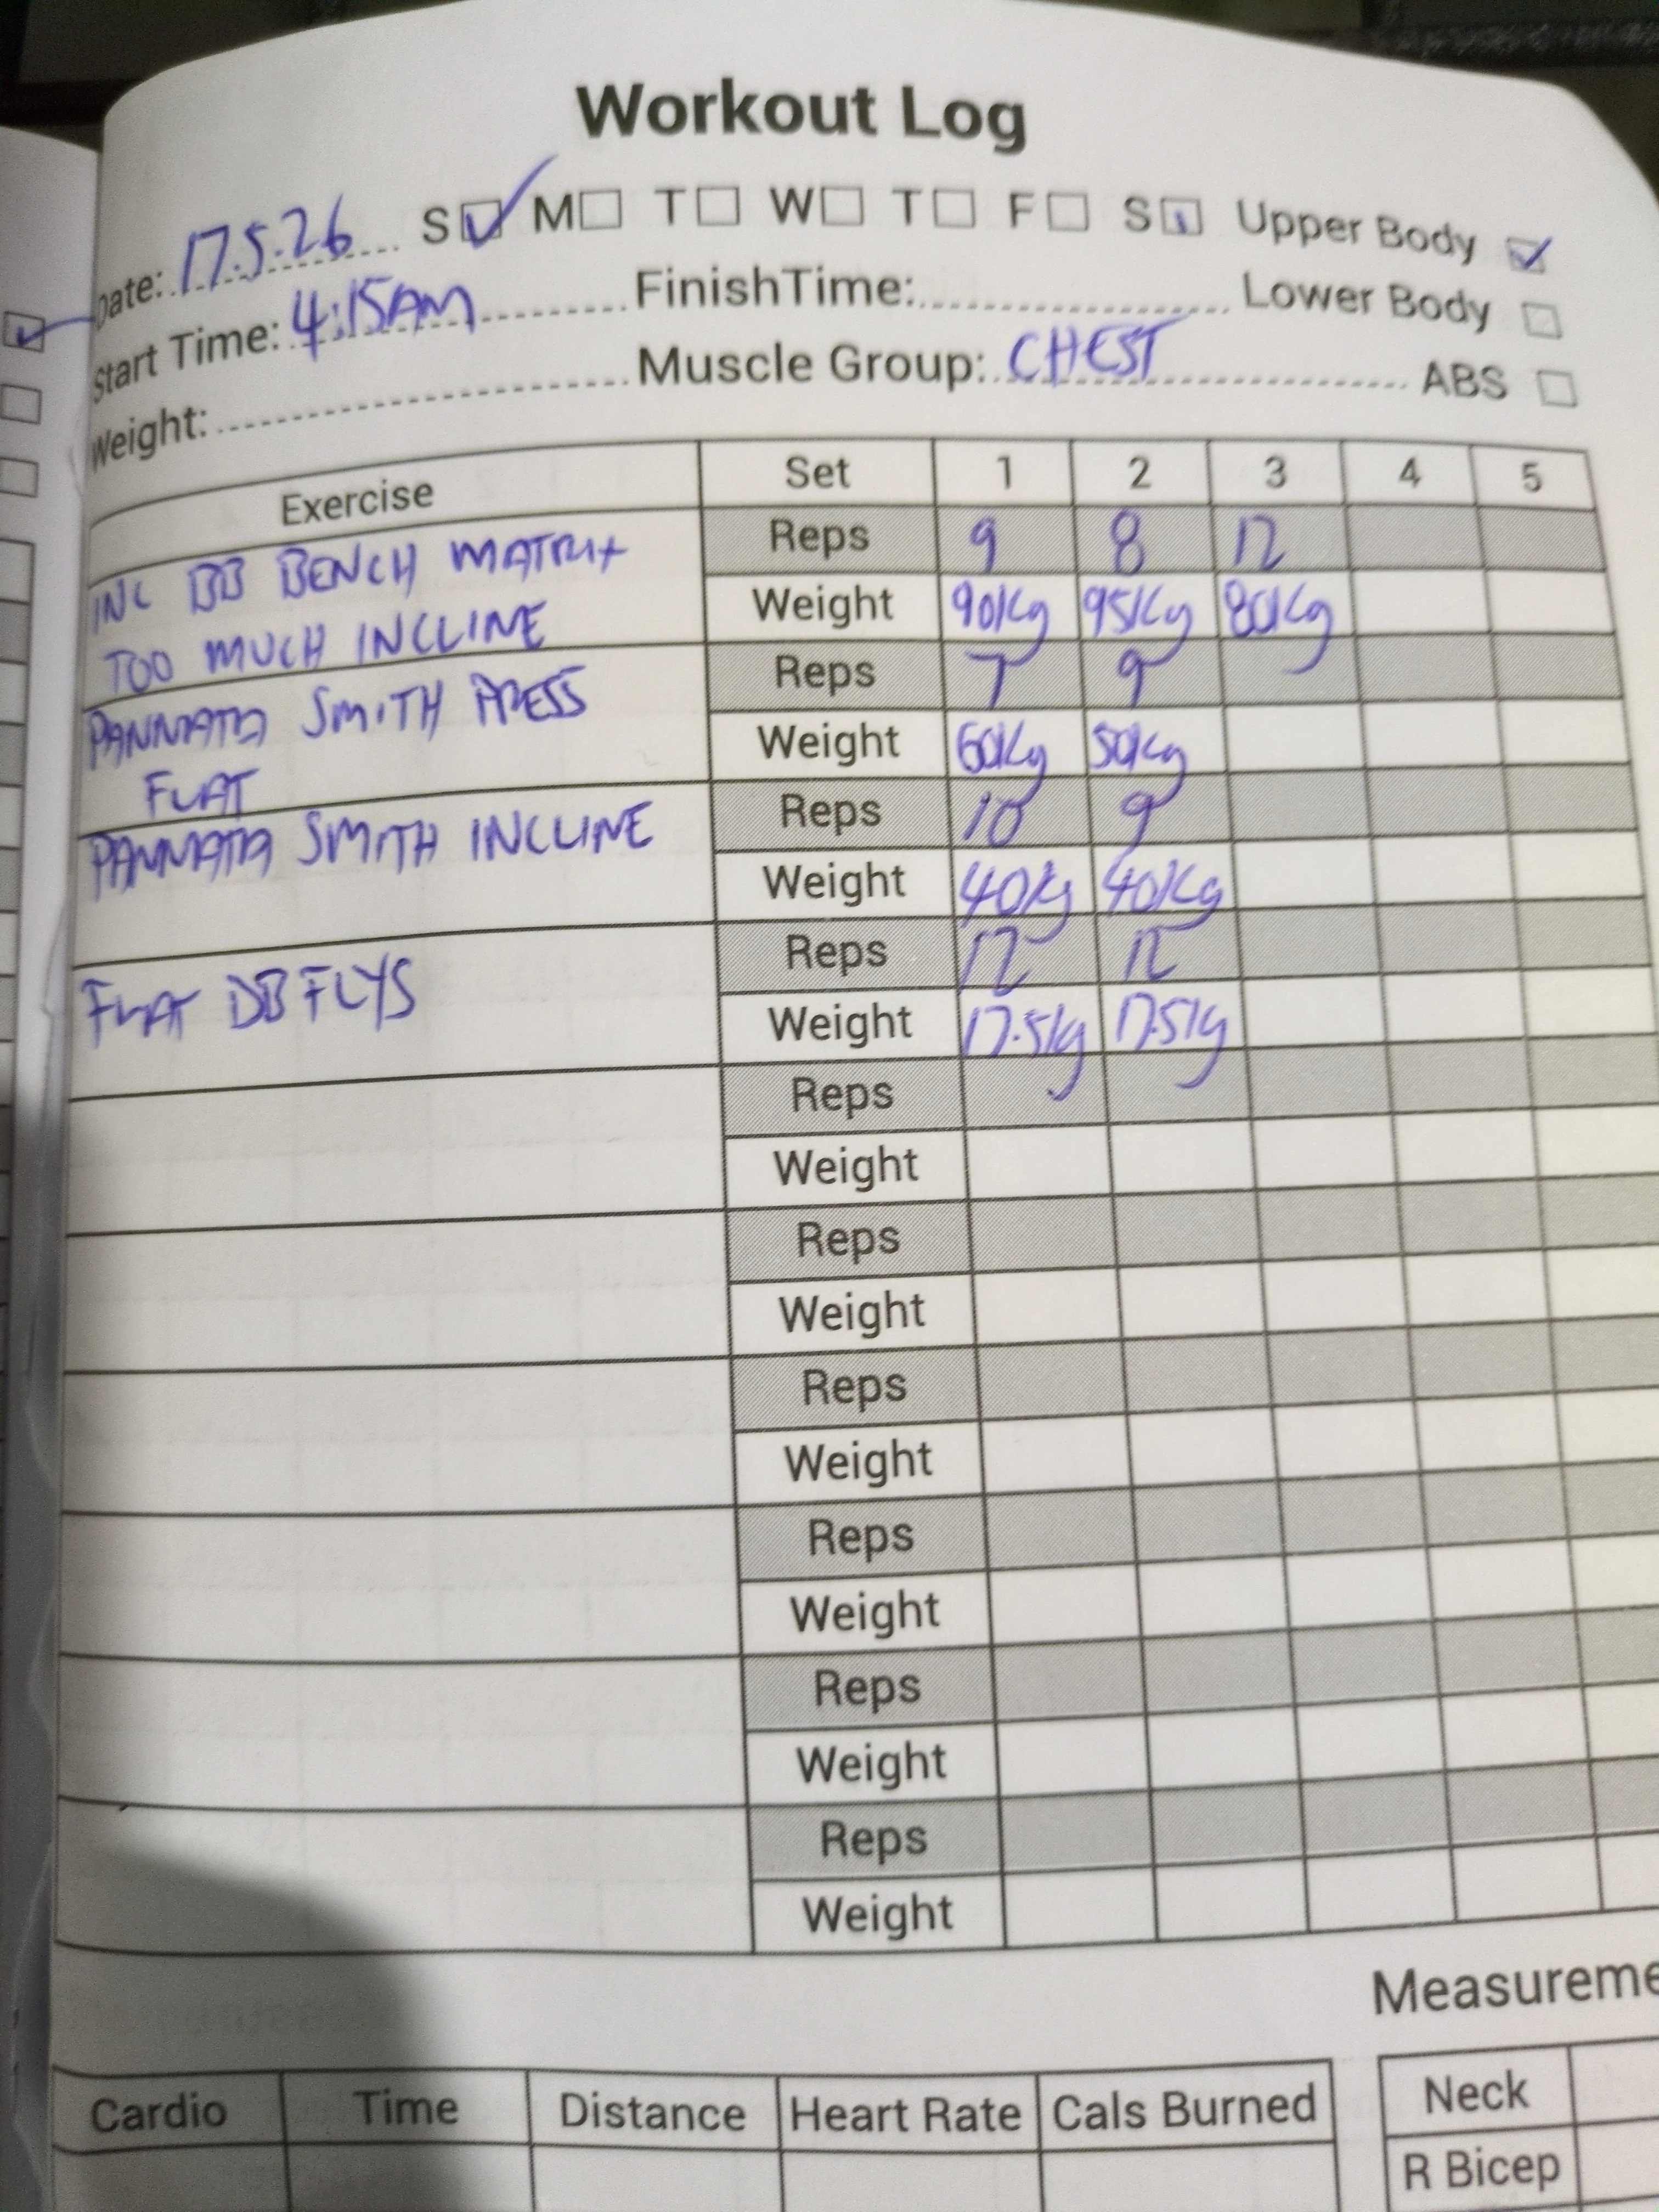 Workout Log
Date: 17.5.26 S M T W T F S Upper Body
Start Time: 4:15AM Finish Time: Lower Body
Weight: Muscle Group: CHEST ABS
Exercise Set 1 2 3 4 5
INC BB BENCH MATRIX Reps 9 8 12
TOO MUCH INCLINE Weight 90Kg 95Kg 80Kg
PANNATTA SMITH PRESS Reps 7 9
FLAT Weight 60Kg 50Kg
PANNATTA SMITH INCLINE Reps 10 9
Weight 40Kg 40Kg
FLAT DB FLYS Reps 12 12
Weight 17.5Kg 17.5Kg
Reps
Weight
Reps
Weight
Reps
Weight
Reps
Weight
Reps
Weight
Reps
Weight
Measureme
Cardio Time Distance Heart Rate Cals Burned
Neck
R Bicep